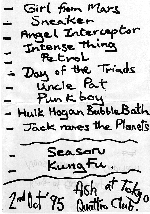 - Girl from Mars
- Sneaker
- Angel Interceptor
- Intense Thing
- Petrol
- Day of the Triads
- Uncle Pat
- Punkboy
- Hulk Hogan Bubble Bath
- Jack names the Planets
- Season
- Kung Fu
Ash at Tokyo
2nd Oct '95 Quattro Club.